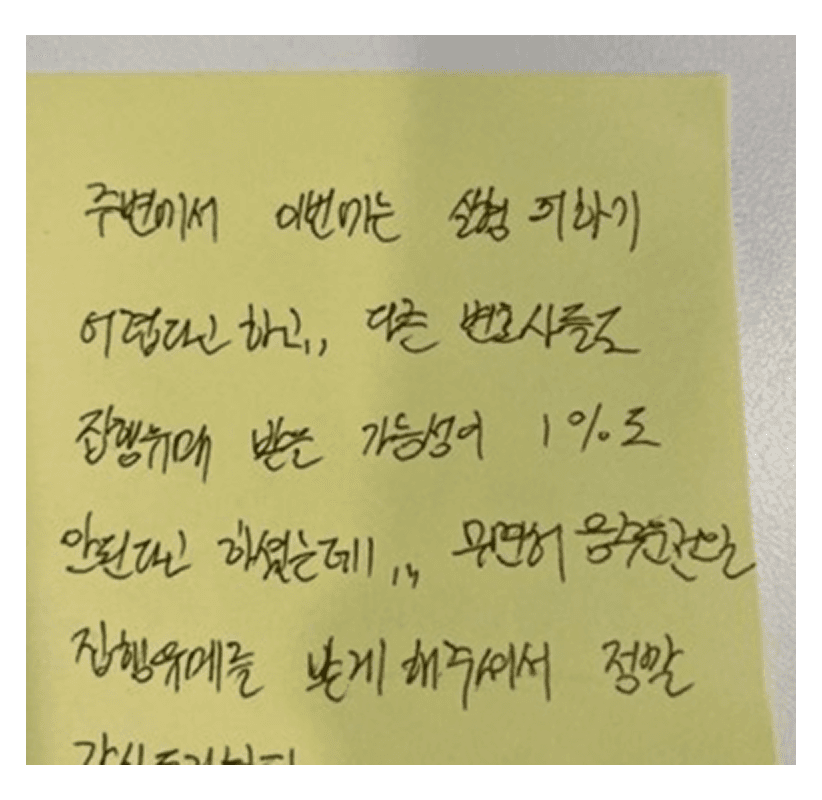 주변에서 이번에는 실형 피하기
어렵다고 하고,, 다른 변호사들도
집행유예 받을 가능성이 1%도
안된다고 하셨는데,,, 무면허 음주운전임
집행유예를 받게 해주셔서 정말
감사드립니다